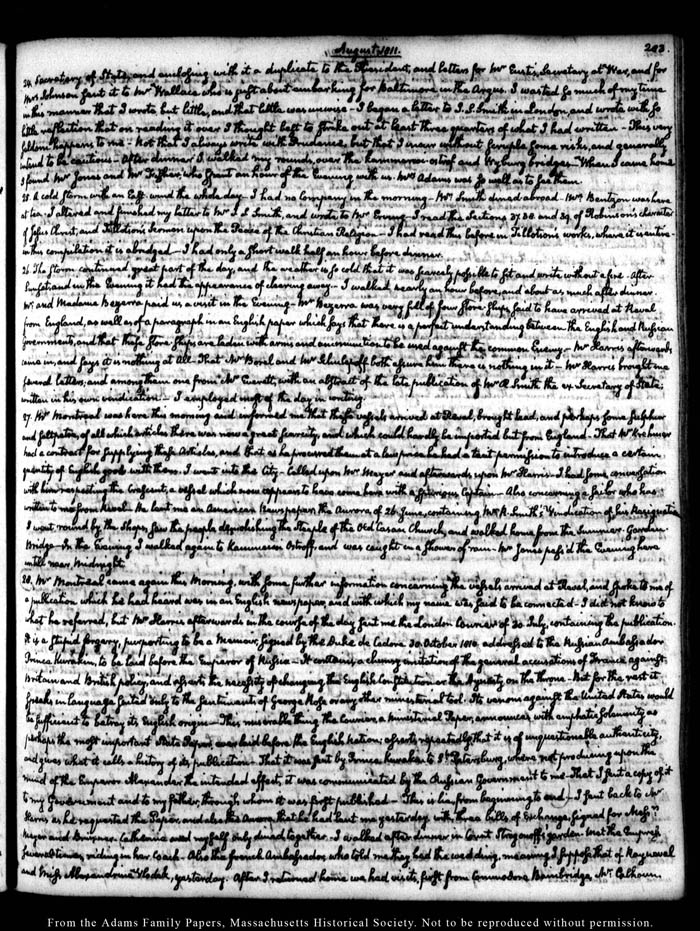 August 1811.
293.
24. Secretary of State, and enclosing with it a duplicate to the President, and letters for Mr Eustis, Secretary at War, and for
Mrs Johnson sent it to Mr Wallace who is just about embarking for Baltimore in the Argus. I wasted so much of my time
in this manner that I wrote but little, and that little was unwise - I began a letter to J. S. Smith in London, and wrote with so
little reflection that on reading it over I thought best to strike out at least three quarters of what I had written - This very
seldom happens to me - Not that I always write with Prudence, but that I incur without scruple some risks, and generally
intend to be cautious - After dinner I walked my rounds, over the Kammenoi-ostrof and Wyburg bridges - When I came home
I found Mr Jones and Mr Fisher, who spent an hour of the Evening with us. Mrs Adams was so well as to see them.
25. A cold storm with an East-wind the whole day - I had no company in the morning - Mr Smith dined abroad - Mrs Bentzon was here
at tea. I altered and finished my letter to Mr J. S. Smith, and wrote to Mr Erving - I read the Sections 37. 38 and 39. of Robinson's character
of Jesus Christ, and Tillotson's Sermon upon the of the Christian Religion - I had read this before in Tillotson's works, where it is entire -
in this compilation it is abridged - I had only a short walk half an hour before dinner.
26. The storm continued, great part of the day, and the weather so cold that it was scarcely possible to sit and write without a fire - After
Sunset, and in the Evening it had the appearance of clearing away - I walked nearly an hour before, and about as much after dinner.
Mr and Madame Bezerra paid us a visit in the Evening - Mr Bezerra was very full of four store-ships said to have arrived at Reval
from England, as well as of a paragraph in an English paper which says that there is a perfect understanding between the English and Russian
Governments, and that these store-ships are laden with arms and ammunition to be used against the common Enemy - Mr Harris afterwards
came in, and says it is nothing at all - That Mr Borel and Mr both assure him there is nothing in it - Mr Harris brought me
several letters, and among them one from Mr Everett, with an abstract of the late publication of Mr R. Smith the ex Secretary of State;
written in his own vindication - I employed most of the day in writing.
27. Mr Montreal was here this morning and informed me that these vessels arrived at Reval, brought lead, and perhaps some sulphur
and saltpetre, of all which articles there was now a great scarcity, and which could hardly be imported but from England - That Mr Krehmer
had a contract for supplying these Articles, and that as he procured them at a low price he had a tacit permission to introduce a certain
quantity of English goods with them. I went into the City - called upon Mr Meyer and afterwards upon Mr Harris - I had some conversation
with him respecting the Crescent, a vessel which now appears to have come here with a fictitious Captain - Also concerning a sailor who has
written to me from Reval. He lent me an American Newspaper, the Aurora, of 26 June, containing Mr R. Smith's Vindication of his Resignation
I went round by the shops, saw the people demolishing the Steeple of the Old Casan Church, and walked home from the Summer-Garden
Bridge - In the Evening I walked again to Kammenoi Ostroff, and was caught in a shower of rain - Mr Jones pass'd the Evening here
until near Midnight.
28. Mr Montreal came again this Morning, with some further information concerning the vessels arrived at Reval, and spoke to me of
a publication which he had heard was in an English newspaper, and with which my name was said to be connected - I did not know to
what he referred, but Mr Harris afterwards in the course of the day sent me the London Courier of 30 July, containing the publication.
It is a stupid forgery, purporting to be a Memoir, signed by the Duke de Cadore 30. October 1810. addressed to the Russian Ambassador
Prince Kurakin, to be laid before the Emperor of Russia - It contains, a clumsy imitation of the general accusations of France against
Britain and British policy, and asserts the necessity of changing the English Constitution or the dynasty on the throne - But for the rest it
speaks in language suited only to the sentiments of George Rose or any other ministerial tool. Its venom against the United States would
be sufficient to betray its English origin - This miserable thing the Courier, a Ministerial Paper, announces with emphatic solemnity as
perhaps the most important State Paper, ever laid before the English Nation; asserts repeatedly that it is of unquestionable authenticity,
and gives what it calls a history of its publication - That it was sent by Prince Kurakin to St. Petersburg, where not producing upon the
mind of the Emperor Alexander the intended effect, it was communicated by the Russian Government to me - That I sent a copy of it
to my Government and to my father, through whom it was first published - This is lie, from beginning to end - I sent back to Mr
Harris as he requested the Paper, and also the Aurora, that he had lent me yesterday, with three bills of Exchange, signed for Messrs
Meyer and Bruxner. Catherine and myself only dined together. I walked after dinner in Count Strogonoff's garden. Met the Empress
several times, riding in her Coach. Also the French Ambassador who told me they had the wedding, meaning I suppose that of Rayneval
and Miss Alexandrina, yesterday. After I returned home we had visits, first from Commodore Bainbridge, Mr Calhoun,
From the Adams Family Papers, Massachusetts Historical Society. Not to be reproduced without permission.